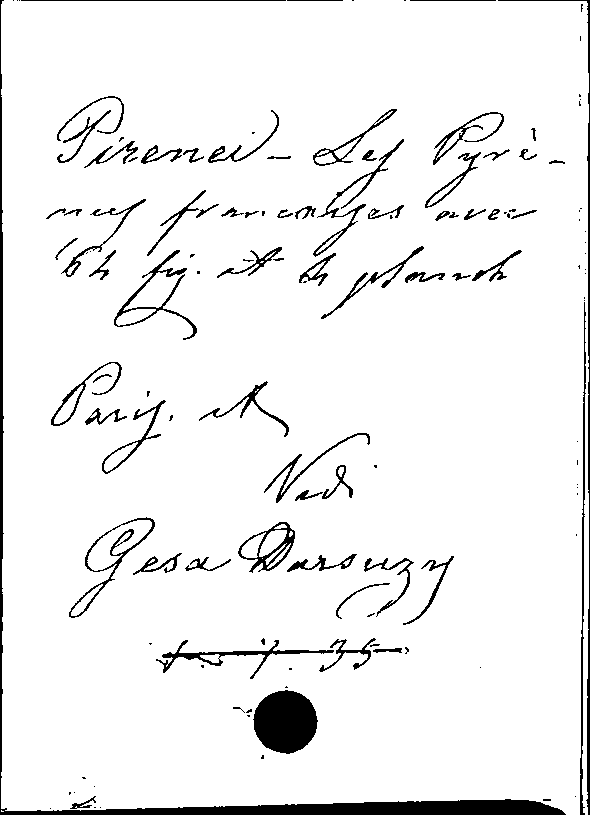 Pirenei - Les Pyré-
nées françaises avec
64 fig. et 4 planch
Paris. et
Vedi
Gesa Darsuzy
7. 35